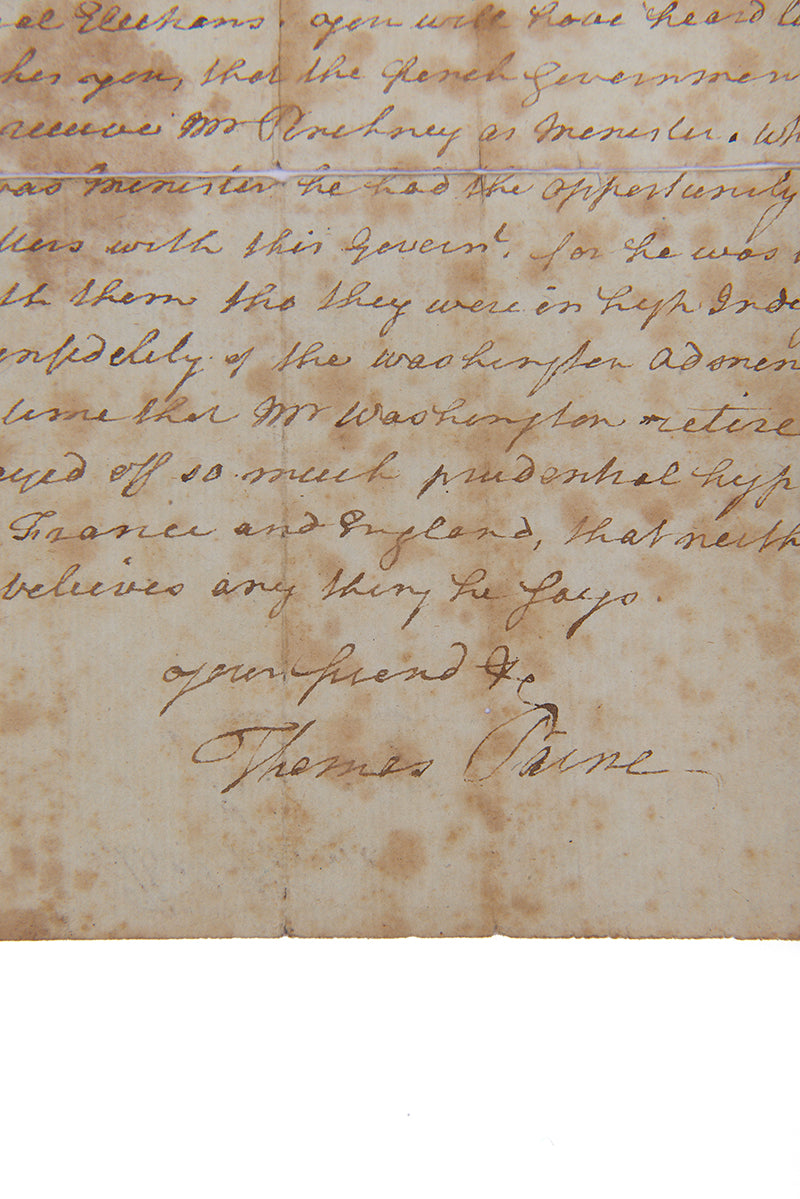 al Elections. you will have heard
you, that the french Government
receive Mr Pinckney as Minister.
was Minister he had the opportunity
with this Govern't. for he was
them tho they were in high
infidelity of the Washington
time that Mr Washington retire
off so much prudential hyp
France and England, that neith
believes any thing he says.
your friend &c
Thomas Paine